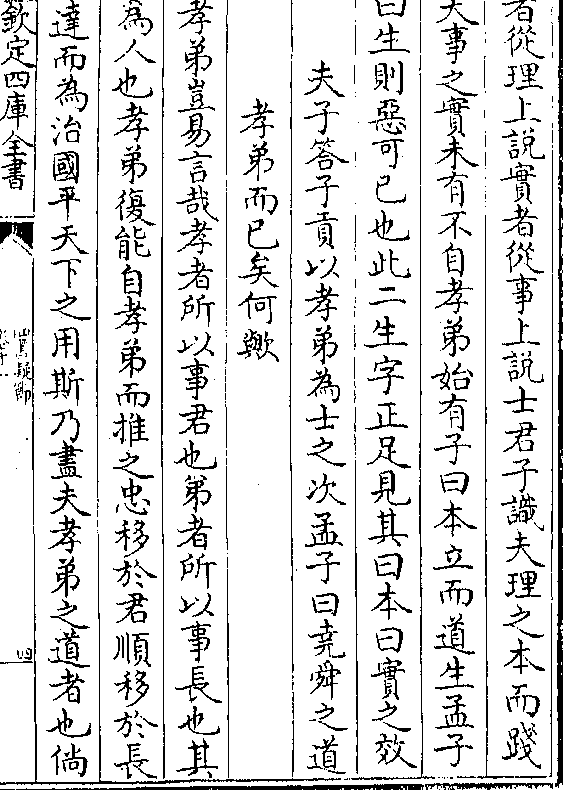 者從理上說實者從事上說士君子識夫理之本而踐
夫事之實未有不自孝弟始有子曰本立而道生孟子
曰生則惡可已也此二生字正足見其曰本曰實之效
夫子答子貢以孝弟為士之次孟子曰堯舜之道
孝弟而已矣何歟
孝弟豈易言哉孝者所以事君也弟者所以事長也其
為人也孝弟復能自孝弟而推之忠移於君順移於長
達而為治國平天下之用斯乃盡夫孝弟之道者也倘
欽定四庫全書
四